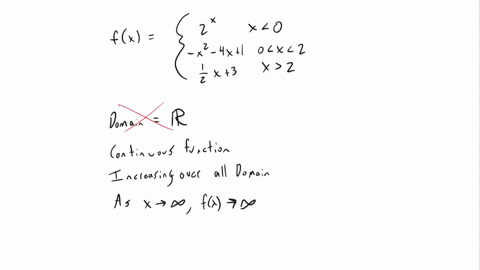 f(x) = { 2^x x < 0
-x^2 - 4x + 1 0 < x < 2
1/2 x + 3 x > 2
Domain = ℝ
Continuous function
Increasing over all Domain
As x → ∞, f(x) → ∞